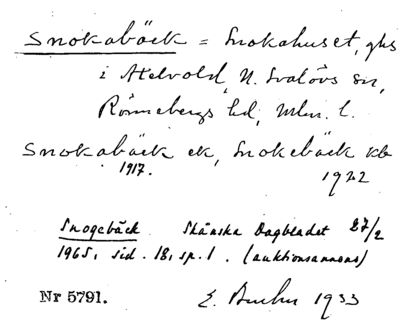 Snokabäck = Snokahuset, ghs
i Atelvold, N. Svalövs sn,
Rönnebergs hd, Mlm. l.
Snokabäck ek, Snokebäck kb
1917. 1922
Snogebäck Skånska Dagbladet 27/2
1965, sid. 18, sp. 1. (auktionsannons)
Nr 5791. E. 1933